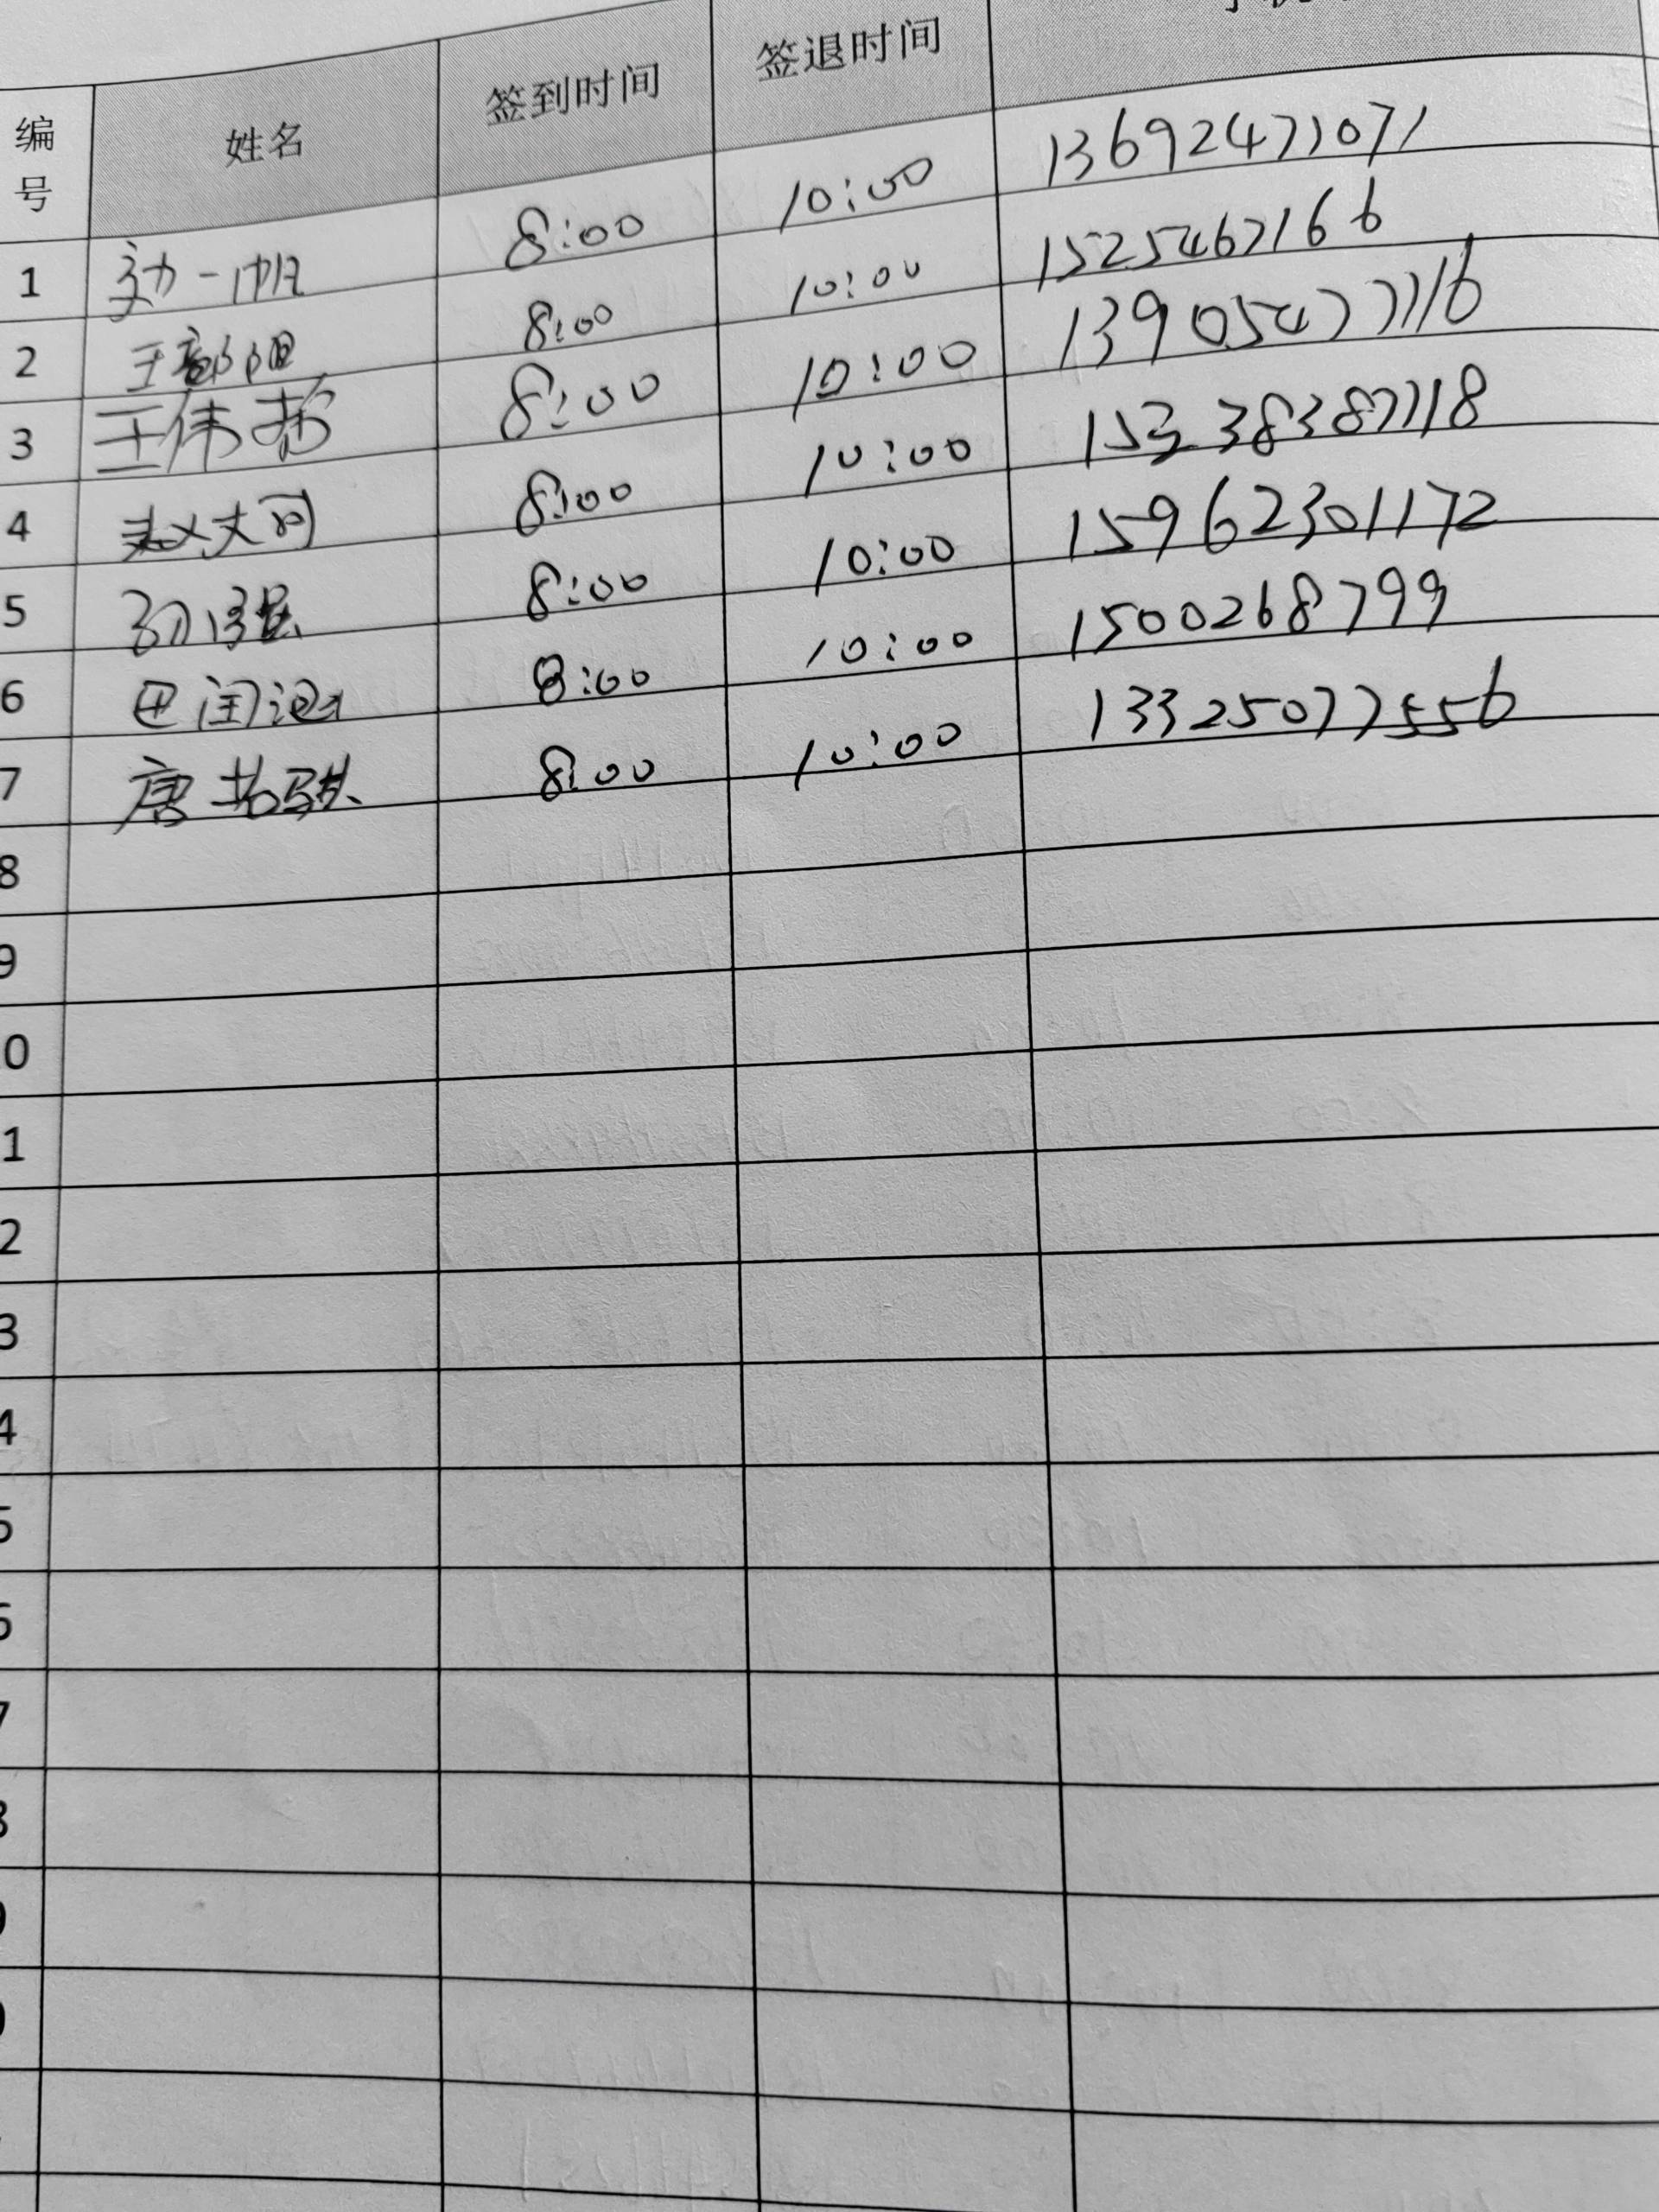 编号 姓名 签到时间 签退时间
1 一帆 8:00 10:00 13692471071
2 王 8:00 10:00 1525467166
3 王伟哲 8:00 10:00 13905477116
4 赵文 8:00 10:00 15338387118
5 孙强 8:00 10:00 15962301172
6 田闰 8:00 10:00 1500268799
7 唐书骐 8:00 10:00 13325077556
8
9
0
1
2
3
4
5
6
7
8
9
0